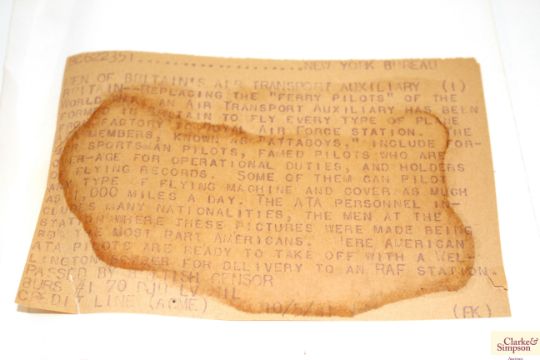 BC622351.......... NEW YORK BUREAU
MEN OF BRITAIN'S AIR TRANSPORT AUXILIARY (1)
BRITAIN--REPLACING THE "FERRY PILOTS" OF THE
WORLD WAR, AN AIR TRANSPORT AUXILIARY HAS BEEN
FORMED IN BRITAIN TO FLY EVERY TYPE OF PLANE
FACTORY ROYAL AIR FORCE STATION. THE
MEMBERS, KNOWN AS "ATTABOYS," INCLUDE FOR-
SPORTSMAN PILOTS, FAMED PILOTS WHO ARE
R-AGE FOR OPERATIONAL DUTIES, AND HOLDERS
FLYING RECORDS. SOME OF THEM CAN PILOT
ANY TYPE OF FLYING MACHINE AND COVER AS MUCH
,000 MILES A DAY. THE ATA PERSONNEL IN-
CLUDES MANY NATIONALITIES, THE MEN AT THE
STATION WHERE THESE PICTURES WERE MADE BEING
THE MOST PART AMERICANS. HERE AMERICAN
ATA PILOTS ARE READY TO TAKE OFF WITH A WEL-
LINGTON BOMBER FOR DELIVERY TO AN RAF STATION.
PASSED BY BRITISH CENSOR
BURS #1 70 NJU LV
CREDIT LINE (ACME) (FK)
Clarke &
Simpson
Auctions